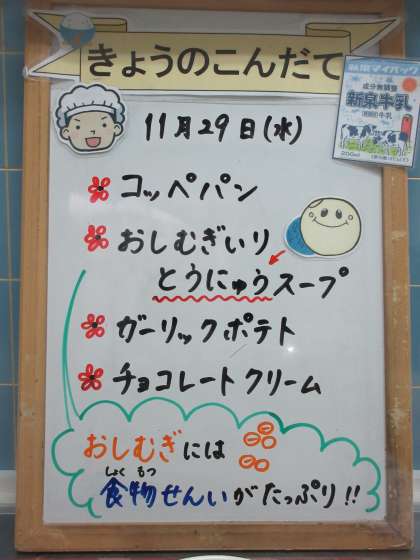 きょうのこんだて
成分無調整
新泉牛乳
200ml
11月29日(水)
コッペパン
おしむぎいり
とうにゅうスープ
ガーリックポテト
チョコレートクリーム
おしむぎには
しょくもつ
食物せんいがたっぷり!!